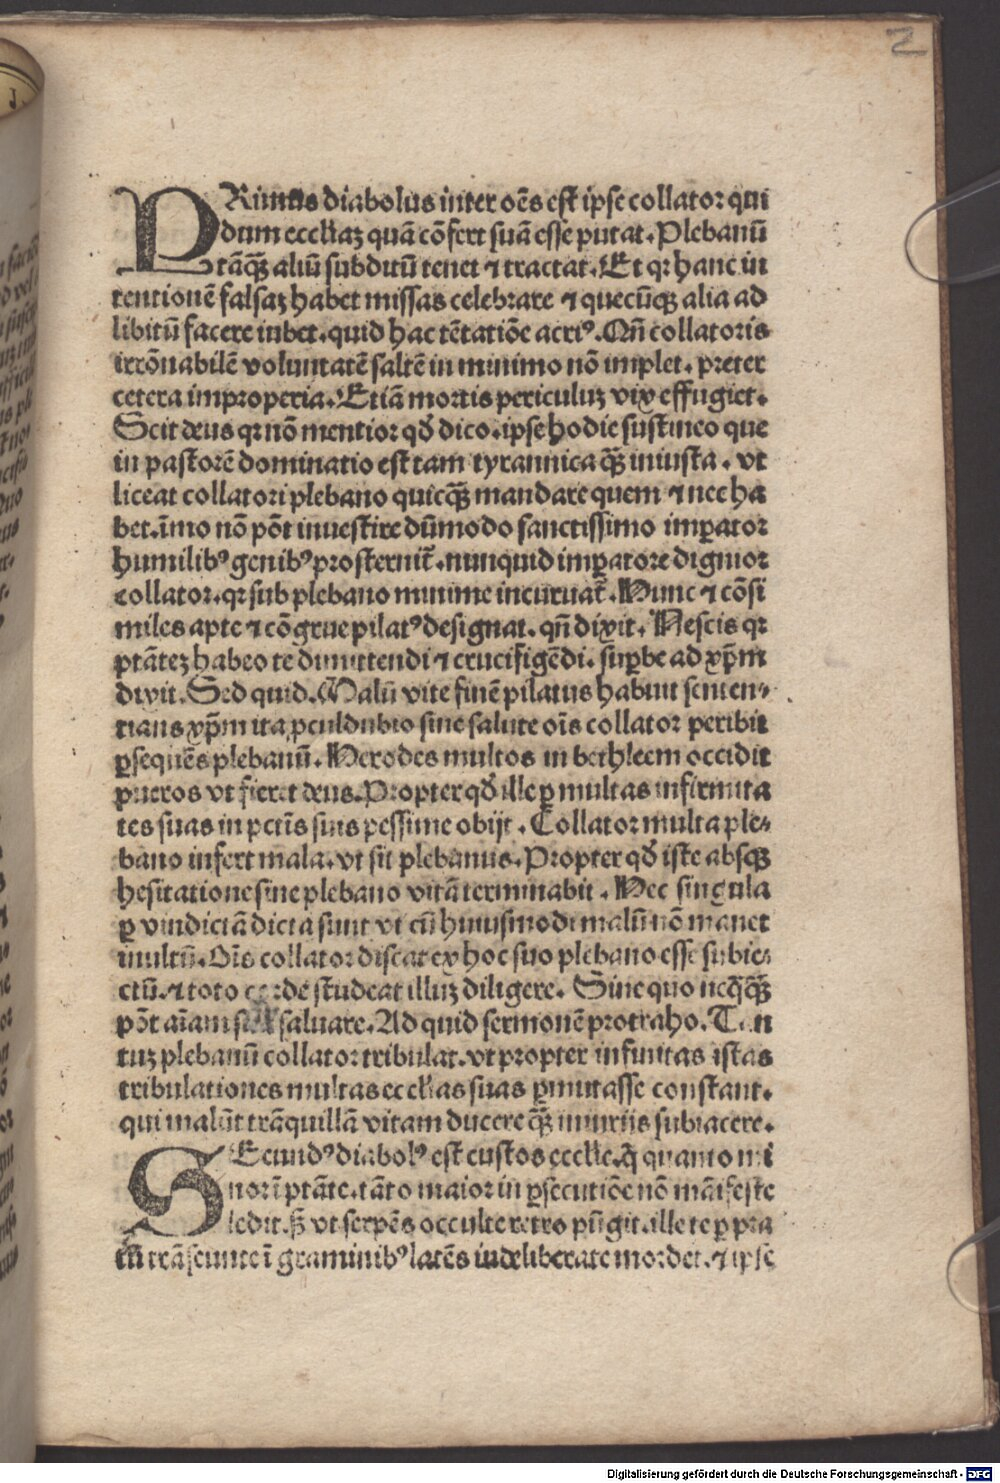 2
PRimus diabolus inter oēs est ipse collator qui
dum eccliaꝫ quā cōfert suā esse putat. Plebanū
tāqꝫ̄ aliū subditū tenet ⁊ tractat. Et qꝛ hanc in
tentionē falsaꝫ habet missas celebrare ⁊ quecūqꝫ alia ad
libitū facere iubet. quid hac tētatiōe acriꝰ. Qn̄ collatoris
irrōnabilē voluntatē saltē in minimo nō implet. preter
cetera improperia. Etiā mortis periculuꝫ vix effugiet.
Scit deus qꝛ nō mentior qd̓ dico. ipse hodie sustineo que
in pastorē dominatio est tam tyrannica qꝫ̄ iniusta. vt
liceat collatori plebano quicqꝫ̄ mandare quem ⁊ nec ha
bet. īmo nō pōt inuestire dūmodo sanctissimo imꝑator
humilibꝰ genibꝰ prosternit᷑. nunquid imꝑatore dignior
collator. qꝛ sub plebano minime incuruat᷑. Hunc ⁊ cōsi
miles apte ⁊ cōgrue pilatꝰ designat. qn̄ dixit. Nescis qꝛ
ptātēꝫ habeo te dimittendi ⁊ crucifigēdi. suꝑbe ad xp̄m
dixit. Sed quid. Malū vite finē pilatus habuit senten⸗
tians xp̄m ita ꝓculdubio sine salute oīs collator peribit
ꝑsequēs plebanū. Herodes multos in bethleem occidit
pueros vt fieret deus. Propter qd̓ ille ꝑ multas infirmita
tes suas in pctīs suis pessime obijt. Collator multa ple⸗
bano infert mala. vt sit plebanus. Propter qd̓ iste absqꝫ
hesitatione sine plebano vitā terminabit. Nec singula
ꝑ vindictā dicta sunt vt cū huiusmodi malū nō manet
inultū. Oīs collator discat ex hoc suo plebano esse subie⸗
ctū. ⁊ toto corde studeat illuꝫ diligere. Sine quo neqꝗꝫ̄
pōt aīam saluare. Ad quid sermonē protraho. Tan
tuꝫ plebanū collator tribulat. vt propter infinitas istas
tribulationes multas ecclias suas ꝑmutasse constant.
qui malūt trāquillā vitam ducere qꝫ̄ iniurijs subiacere.
SEcundꝰ diabolꝰ est custos ecclie. ꝗ̄ quanto mi
nor ī ptāte. tāto maior in ꝑsecutiōe nō māifeste
ledit. sꝫ vt serpēs occulte retro pūgit. ille te ꝑ pra
tū trāseunte ī graminibꝰ latēs indeliberate mordet. ⁊ ipse
Digitalisierung gefördert durch die Deutsche Forschungsgemeinschaft - DFG